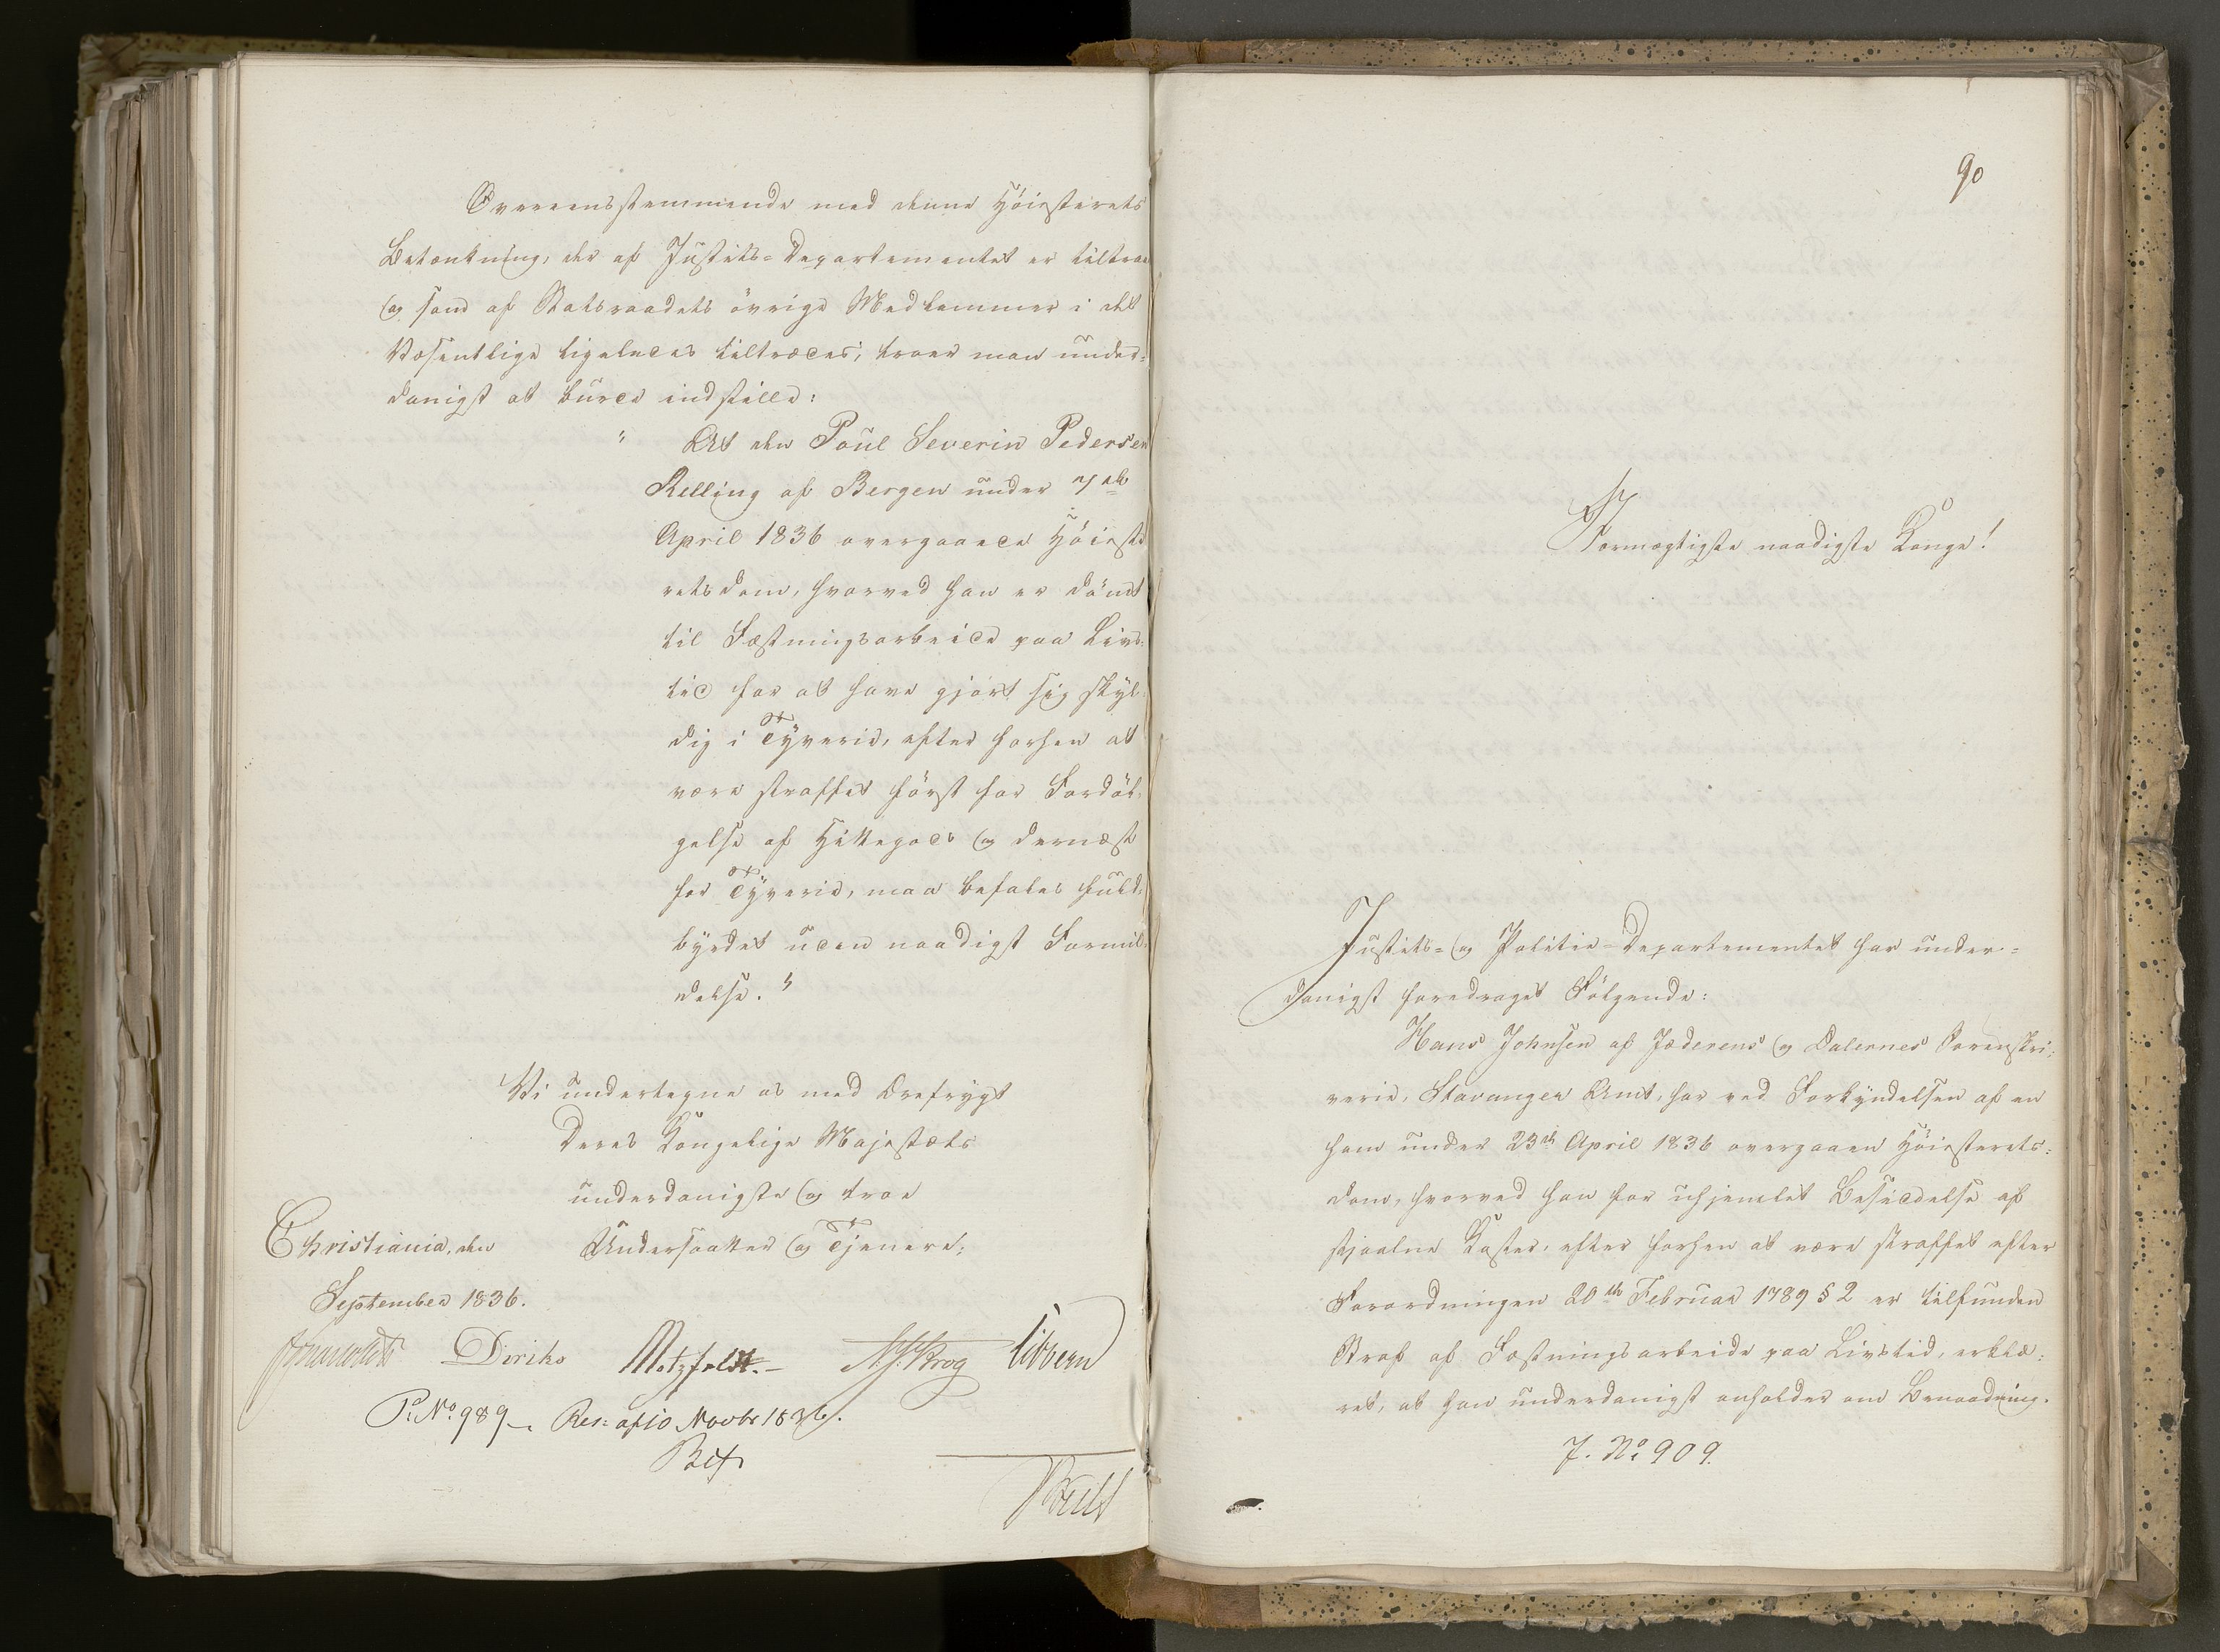 Overeensstemmende med denne Höiesterets
Betænkning, der af Justits-Departementet er tiltraa
og som af Statsraadets övrige Medlemmer i det
Væsentlige ligeledes tiltrædes, troer man under-
danigst at burde indstille:
" At den Poul Severin Pedersen
Relling af Bergen under 7de
April 1836 overgaaede Höieste
retsdom, hvorved han er dömt
til Fæstningsarbeide paa Livs-
tid for at have gjort sig skyl-
dig i 3die Tyverie, efter forhen at
være straffet först for Fordöl-
gelse af Hittegods og dernæst
for Tyverie, maa befales fuld-
byrdet uden naadigst Formil-
delse."
Vi undertegne os med Ærefrygt
Deres Kongelige Majestæts
underdanigste og troe
Christiania, den Undersaatter og Tjenere:
September 1836.
Diriks Motzfeldt.- Krog Sibbern
P. No. 989. Res: af 10 Novbr 1836.
90
Stormægtigste naadigste Konge!
Justits- og Politie-Departementet har under-
danigst foredraget Fölgende:
Hans Johnsen af Jæderens og Dalernes Sorenskri-
verie, Stavanger Amt, har ved Forkyndelsen af en
ham under 23de April 1836 overgaaen Höiesterets-
dom, hvorved han for uhjemlet Besiddelse af
stjaalne Koster, efter forhen at være straffet efter
Forordningen 20de Februar 1789 § 2 er tilfunden
Straf af Fæstningsarbeide paa Livstid, erklæ-
ret, at han underdanigst anholder om Benaadning.
J. No 909.